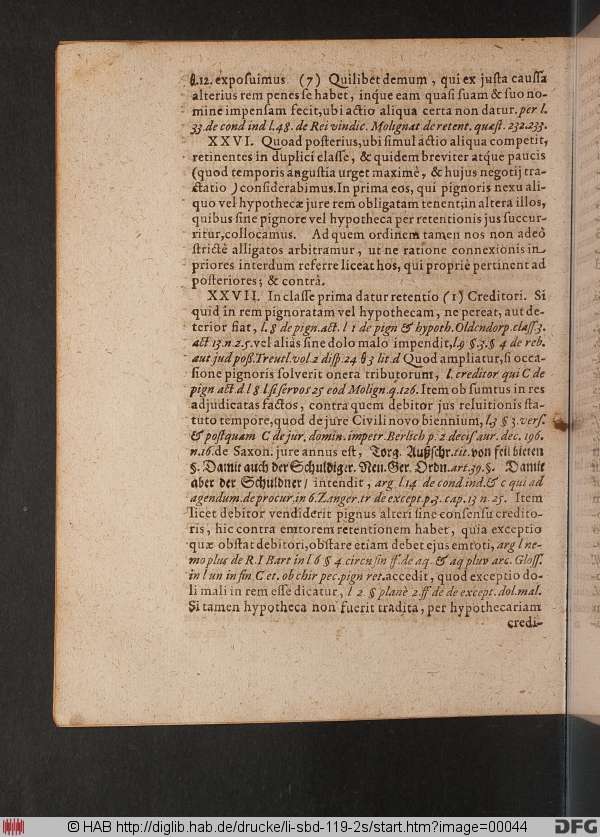 θ.12. exposuimus (7) Quilibet demum, qui ex justa caussa
alterius rem penes se habet, inque eam quasi suam & suo no-
mine impensam fecit, ubi actio aliqua certa non datur. per l.
33. de cond ind l. 48. de Rei vindic. Molignat de retent. quæst. 232. 233.
XXVI. Quoad posterius, ubi simul actio aliqua competit,
retinentes in duplici classe, & quidem breviter atque paucis
(quod temporis angustia urget maximè, & hujus negotij tra-
ctatio) considerabimus. In prima eos, qui pignoris nexu ali-
quo vel hypothecæ jure rem obligatam tenent; in altera illos,
quibus sine pignore vel hypotheca per retentionis jus succur-
ritur, collocamus. Ad quem ordinem tamen nos non adeò
strictè alligatos arbitramur, ut ne ratione connexionis in
priores interdum referre liceat hos, qui propriè pertinent ad
posteriores; & contrà.
XXVII. In classe prima datur retentio (1) Creditori. Si
quid in rem pignoratam vel hypothecam, ne pereat, aut de-
terior fiat, l. 8 de pign. act. l 1 de pign & hypoth. Oldendorp. class. 3.
act 13. n. 2. 5. vel aliàs sine dolo malo impendit, l. 9 §. 3. § 4 de reb.
aut jud poss. Treutl. vol. 2 disp. 24 θ 3 lit. d Quod ampliatur, si occa-
sione pignoris solverit onera tributorum, l. creditor qui C de
pign act. d l 8 l. si servos 25 eod Molign. q. 126. Item ob sumtus in res
adjudicatas factos, contra quem debitor jus reluitionis sta-
tuto tempore, quod de jure Civili novo biennium, l. 3 § 3. vers.
& postquam C de jur. domin. impetr. Berlich p. 2 decis. aur. dec. 196.
n. 16. de Saxon. jure annus est, Torg. Außschr. tit. von feil bieten
§. Damit auch der Schuldiger. Neu. Ger. Ordn. art. 39. §. Damit
aber der Schuldner/ intendit, arg l. 14 de cond ind. & c qui ad
agendum. de procur. in 6. Zanger. tr de except. p. 3. cap. 13 n. 25. Item
licet debitor vendiderit pignus alteri sine consensu credito-
ris, hic contra emtorem retentionem habet, quia exceptio
quæ obstat debitori, obstare etiam debet ejus emtori, arg l ne-
mo plus de R. I Bart in l 6 § 4. circa fin ff. de aq. & aq pluv arc. Gloss.
in l un in fin. C et. ob chir pec. pign ret. accedit, quod exceptio do-
li mali in rem esse dicatur, l 2 § planè 2. ff de de except. dol. mal.
Si tamen hypotheca non fuerit tradita, per hypothecariam
credi-
© HAB http://diglib.hab.de/drucke/li-sbd-119-2s/start.htm?image=00044
DFG